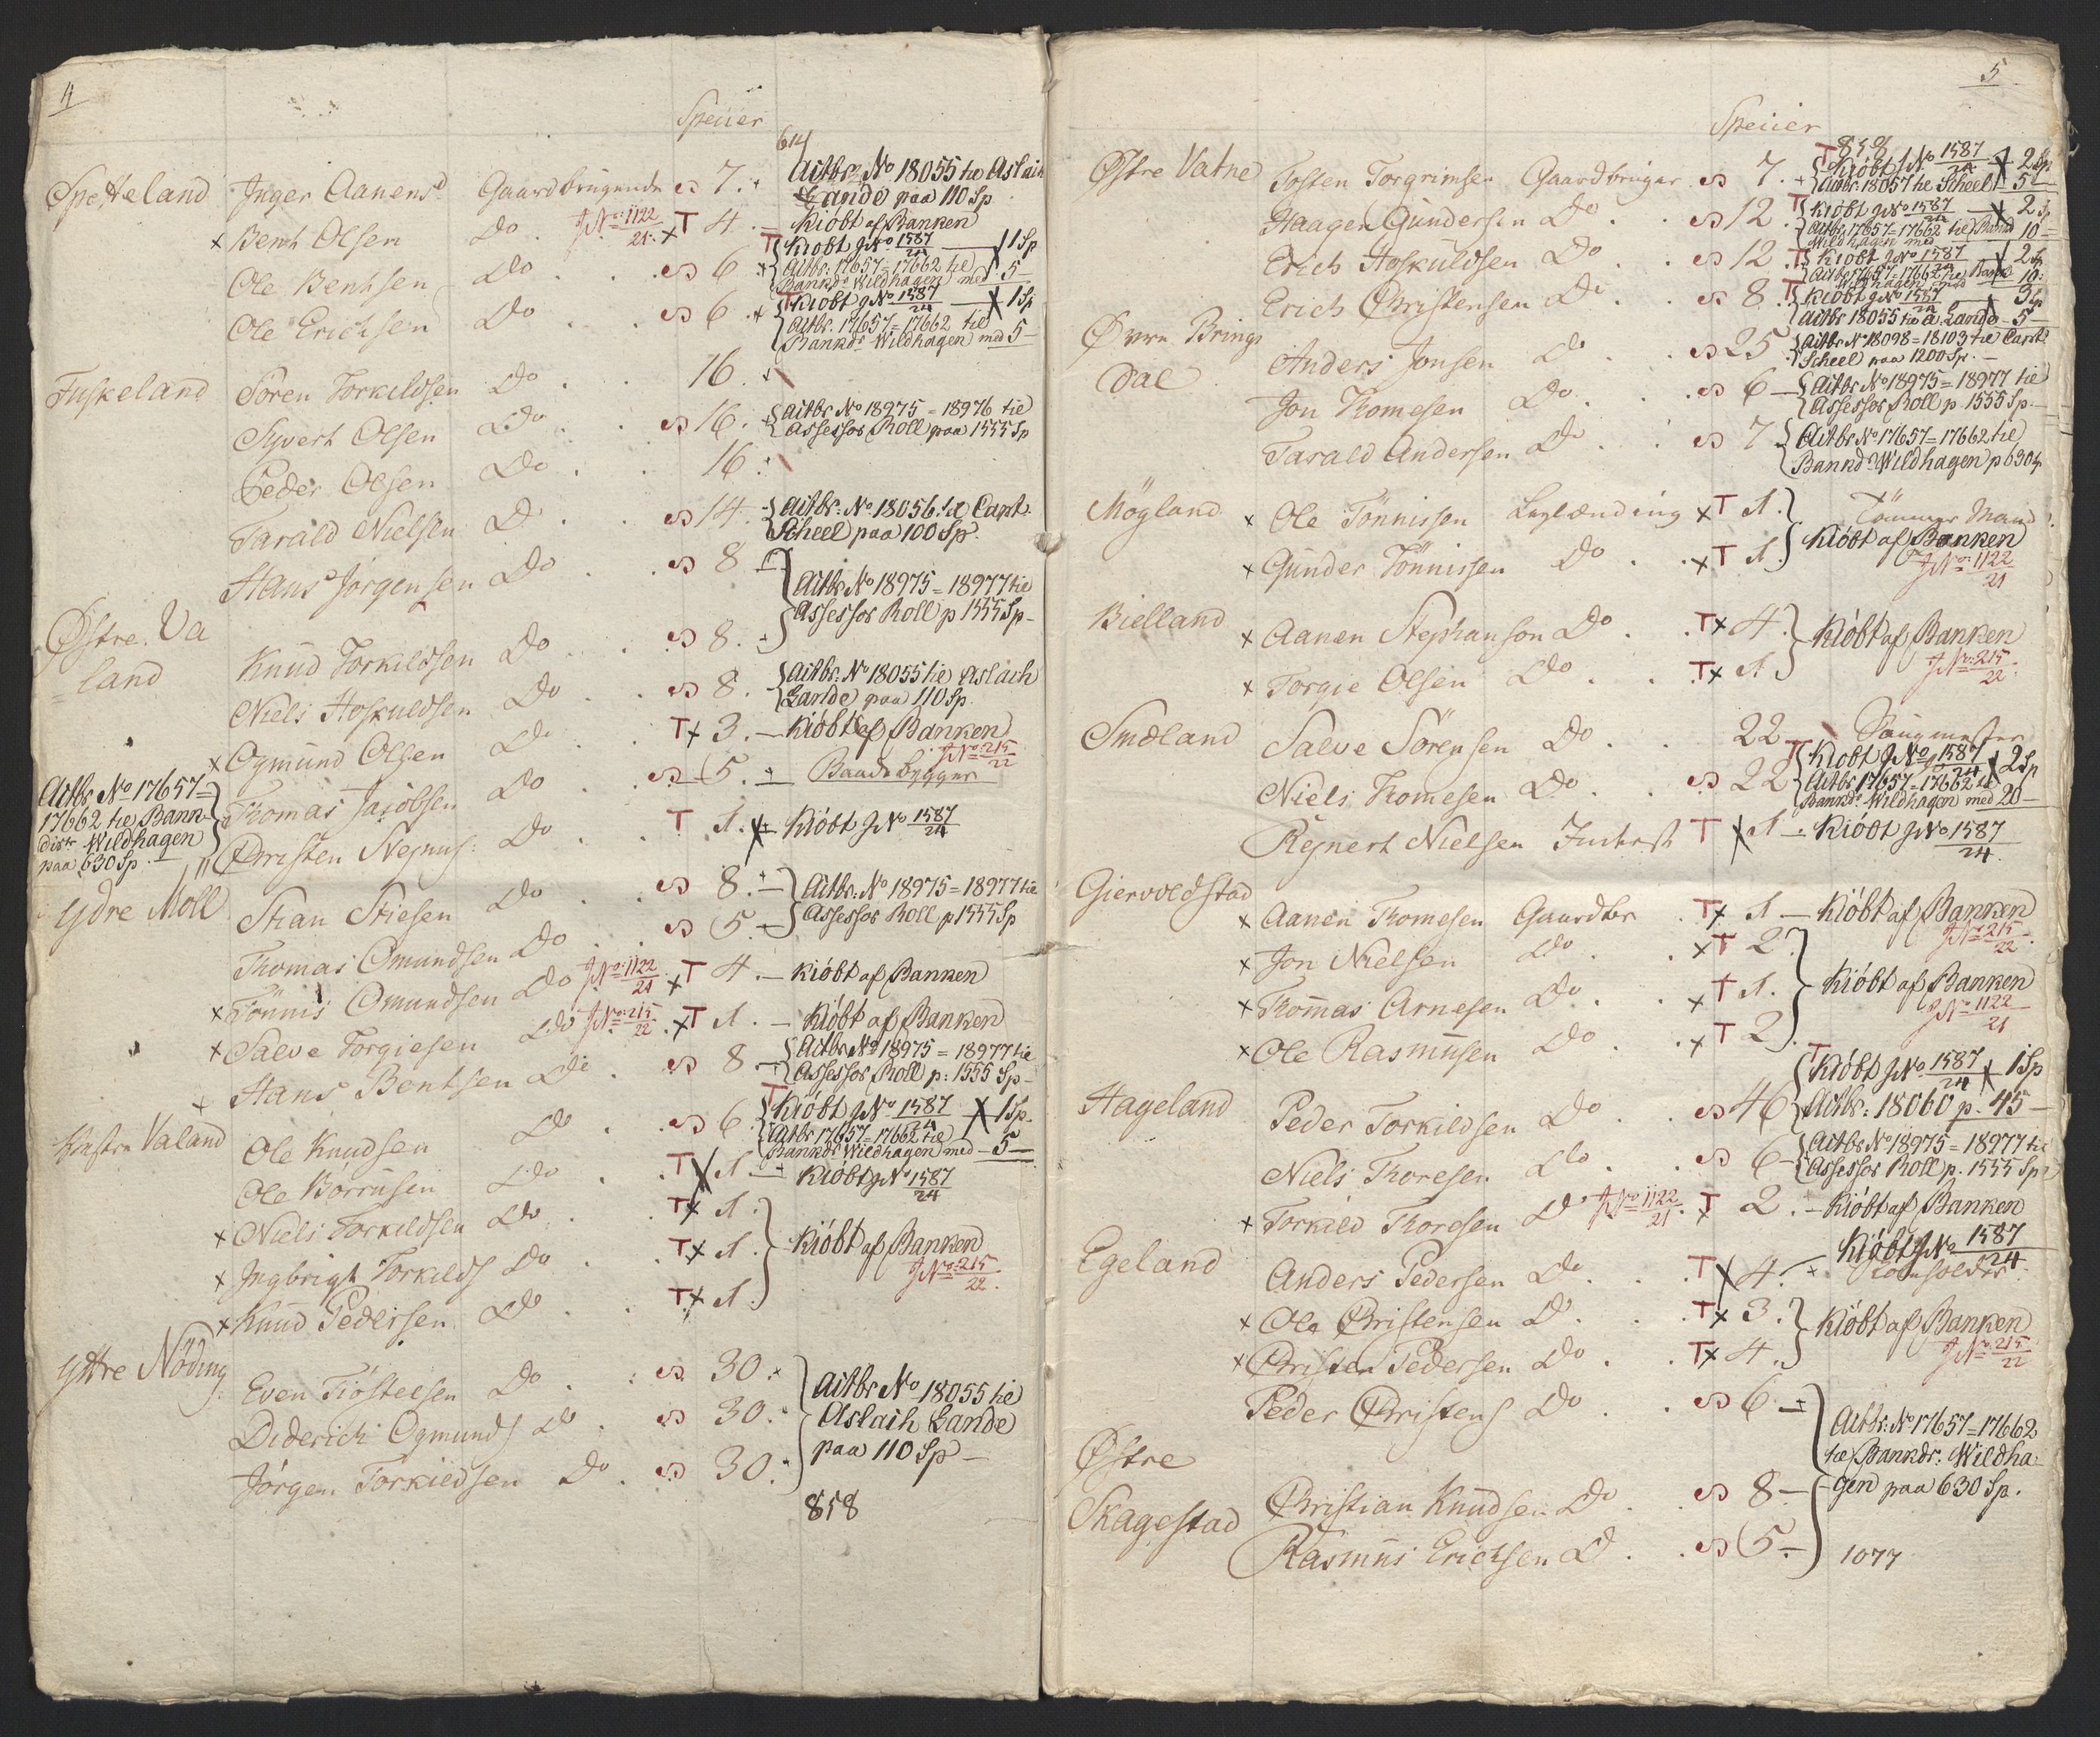 4
Speciier
614
Spetteland Inger Aanensd Gaardbrugende 7. Actbr. No 18055 til Aslach
Lande paa 110 Sp
x Bent Olsen Do JNo: 1122/21. xT 4. — Kiöbt af Banken
Ole Bentsen Do 6 T Kiöbt JNo 1587/24 — 1 Sp
Actbr. 17657=17662 til
Bankdr Wildhagen med 5 —
Ole Erichsen Do 6 T Kiöbt JNo 1587/24 — 1 Sp
Actbr. 17657=17662 til
Bankdr Wildhagen med 5 —
Fuskeland Sören Torkildsen Do 16.
Syvert Olsen Do 16. Actbr No 18975=18976 til
Assessor Roll paa 1555 Sp
Peder Olsen Do 16.
Tarald Nielsen Do 14. Actbr. No 18056 til Capt.
Scheel paa 100 Sp.
Hans Jörgensen Do 8
Actbr No 18975=18977 til
Assessor Roll p 1555 Sp —
Östre Va
land Knud Torkildsen Do 8.
Niels Hoskuldsen Do 8. Actbr. No 18055 til Aslach
Lande paa 110 Sp.
x Ogmund Olsen Do Tx 3. — Kiöbt af Banken
JNo: 215/22
Actbr No 17657=
17662 til Bank
distr Wildhagen
paa 630 Sp.
Thomas Jacobsen Do 5. — Baadebygger
Christen Do T 1. x Kiöbt JNo 1587/24
Ydre Moll Stian Stiesen Do 8. — Actbr. No 18975=18977 til
Assessor Roll p 1555 Sp
Thomas Omundsen Do 5.
x Tönnis Omundsen Do JNo: 1122/21 xT 4. — Kiöbt af Banken
x Salve Torgiesen Do JNo: 215/22 xT 1. — Kiöbt af Banken
Hans Bentsen Do 8 Actbr No 18975=18977 til
Assessor Roll p: 1555 Sp —
Vestre Valand Ole Knudsen Do 6. T Kiöbt JNo 1587/24 x 1 Sp.
Actbr 17657=17662 til
Bankdr Wildhagen med — 5 —
Ole Börrusen Do T x 1. — Kiöbt JNo 1587/24
x Niels Torkildsen Do Tx 1.
x Ingbrigt Torkilds Do Tx 1. Kiöbt af Banken
JNo: 215/22.
x Knud Pedersen Do Tx 1.
Yttre Nöding Even Tiöstelsen Do 30.
Diderich Ogmunds Do 30. Actbr No 18055 til
Aslach Lande
paa 110 Sp —
Jörgen Torkildsen Do 30.
858
5
Speciier
858
Östre Vatne Tosten Torgrimsen Gaardbruger 7. T Kiöbt JNo 1587/24 x 2 Sp
Actbr. 18057 til Scheel 5 —
Haagen Gundersen Do 12. T Kiöbt JNo 1587/24 x 2 Sp
Actbr. 17657=17662 til Bankd
Wildhagen med 10 =
Erich Hoskuldsen Do 12. T Kiöbt JNo 1587/24 2 Sp
Actbr 17657=17662 til Bankd
Wildhagen med 10.
Erich Christensen Do 8. T Kiöbt JNo 1587/24 3 Sp
Actbr 18055 til A. Lande — 5 —
Övre Brings
dal Anders Jonsen Do 25. Actbr No 18098=18103 til Capt.
Scheel paa 1200 Sp. —
Jon Thomesen Do 6 — Actbr No 18975=18977 til
Assessor Roll p 1555 Sp. —
Tarald Andersen Do 7. Actbr No 17657=17662 til
Bankdr Wildhagen p 630 Sp
Mögland x Ole Tönnissen Leylænding xT 1. Tömmer Mand
Kiöbt af Banken
JNo: 1122/21
x Gunder Tönnissen Do xT 1.
Bielland x Aanen Stephanson Do Tx 4. Kiöbt af Banken
JNo: 215/22.
x Torgie Olsen Do Tx 1.
Smeland Salve Sörensen Do 22 Saugmester
Niels Thomesen Do 22 T Kiöbt JNo 1587/24 x 2 Sp
Actbr 17657=17662 til
Bankdr Wildhagen med 20 —
Rejnert Nielsen Inderst T x 1 — Kiöbt JNo 1587/24.
Giervoldstad x Aanen Thomesen Gaardbr Tx 1 — Kiöbt af Banken
JNo: 215/22.
x Jon Nielsen Do xT 2.
x Thommas Arnesen Do xT 1. Kiöbt af Banken
JNo: 1122/21
x Ole Rasmusen Do xT 2.
Hageland Peder Torkildsen Do 46 T Kiöbt JNo 1587/24 x 1 Sp
Actbr: 18060 p. 45 —
Niels Thoresen Do 6 — Actbr No 18975=18977 til
Assessor Roll p. 1555 Sp
x Torkild Thoresen Do JNo 1122/21. Tx 2. — Kiöbt af Banken
Egeland Anders Pedersen Do T x 4. Kiöbt JNo 1587/24
x Ole Christensen Do Tx 3. Kiöbt af Banken
JNo: 215/22
x Christen Pedersen Do Tx 4.
Peder Christens Do 6 —
Actbr: No 17657=17662
til Bankdr: Wildha
gen paa 630 Sp.
Östre
Skagestad Christian Knudsen Do 8 —
Rasmus Erichsen Do 5. —
1077